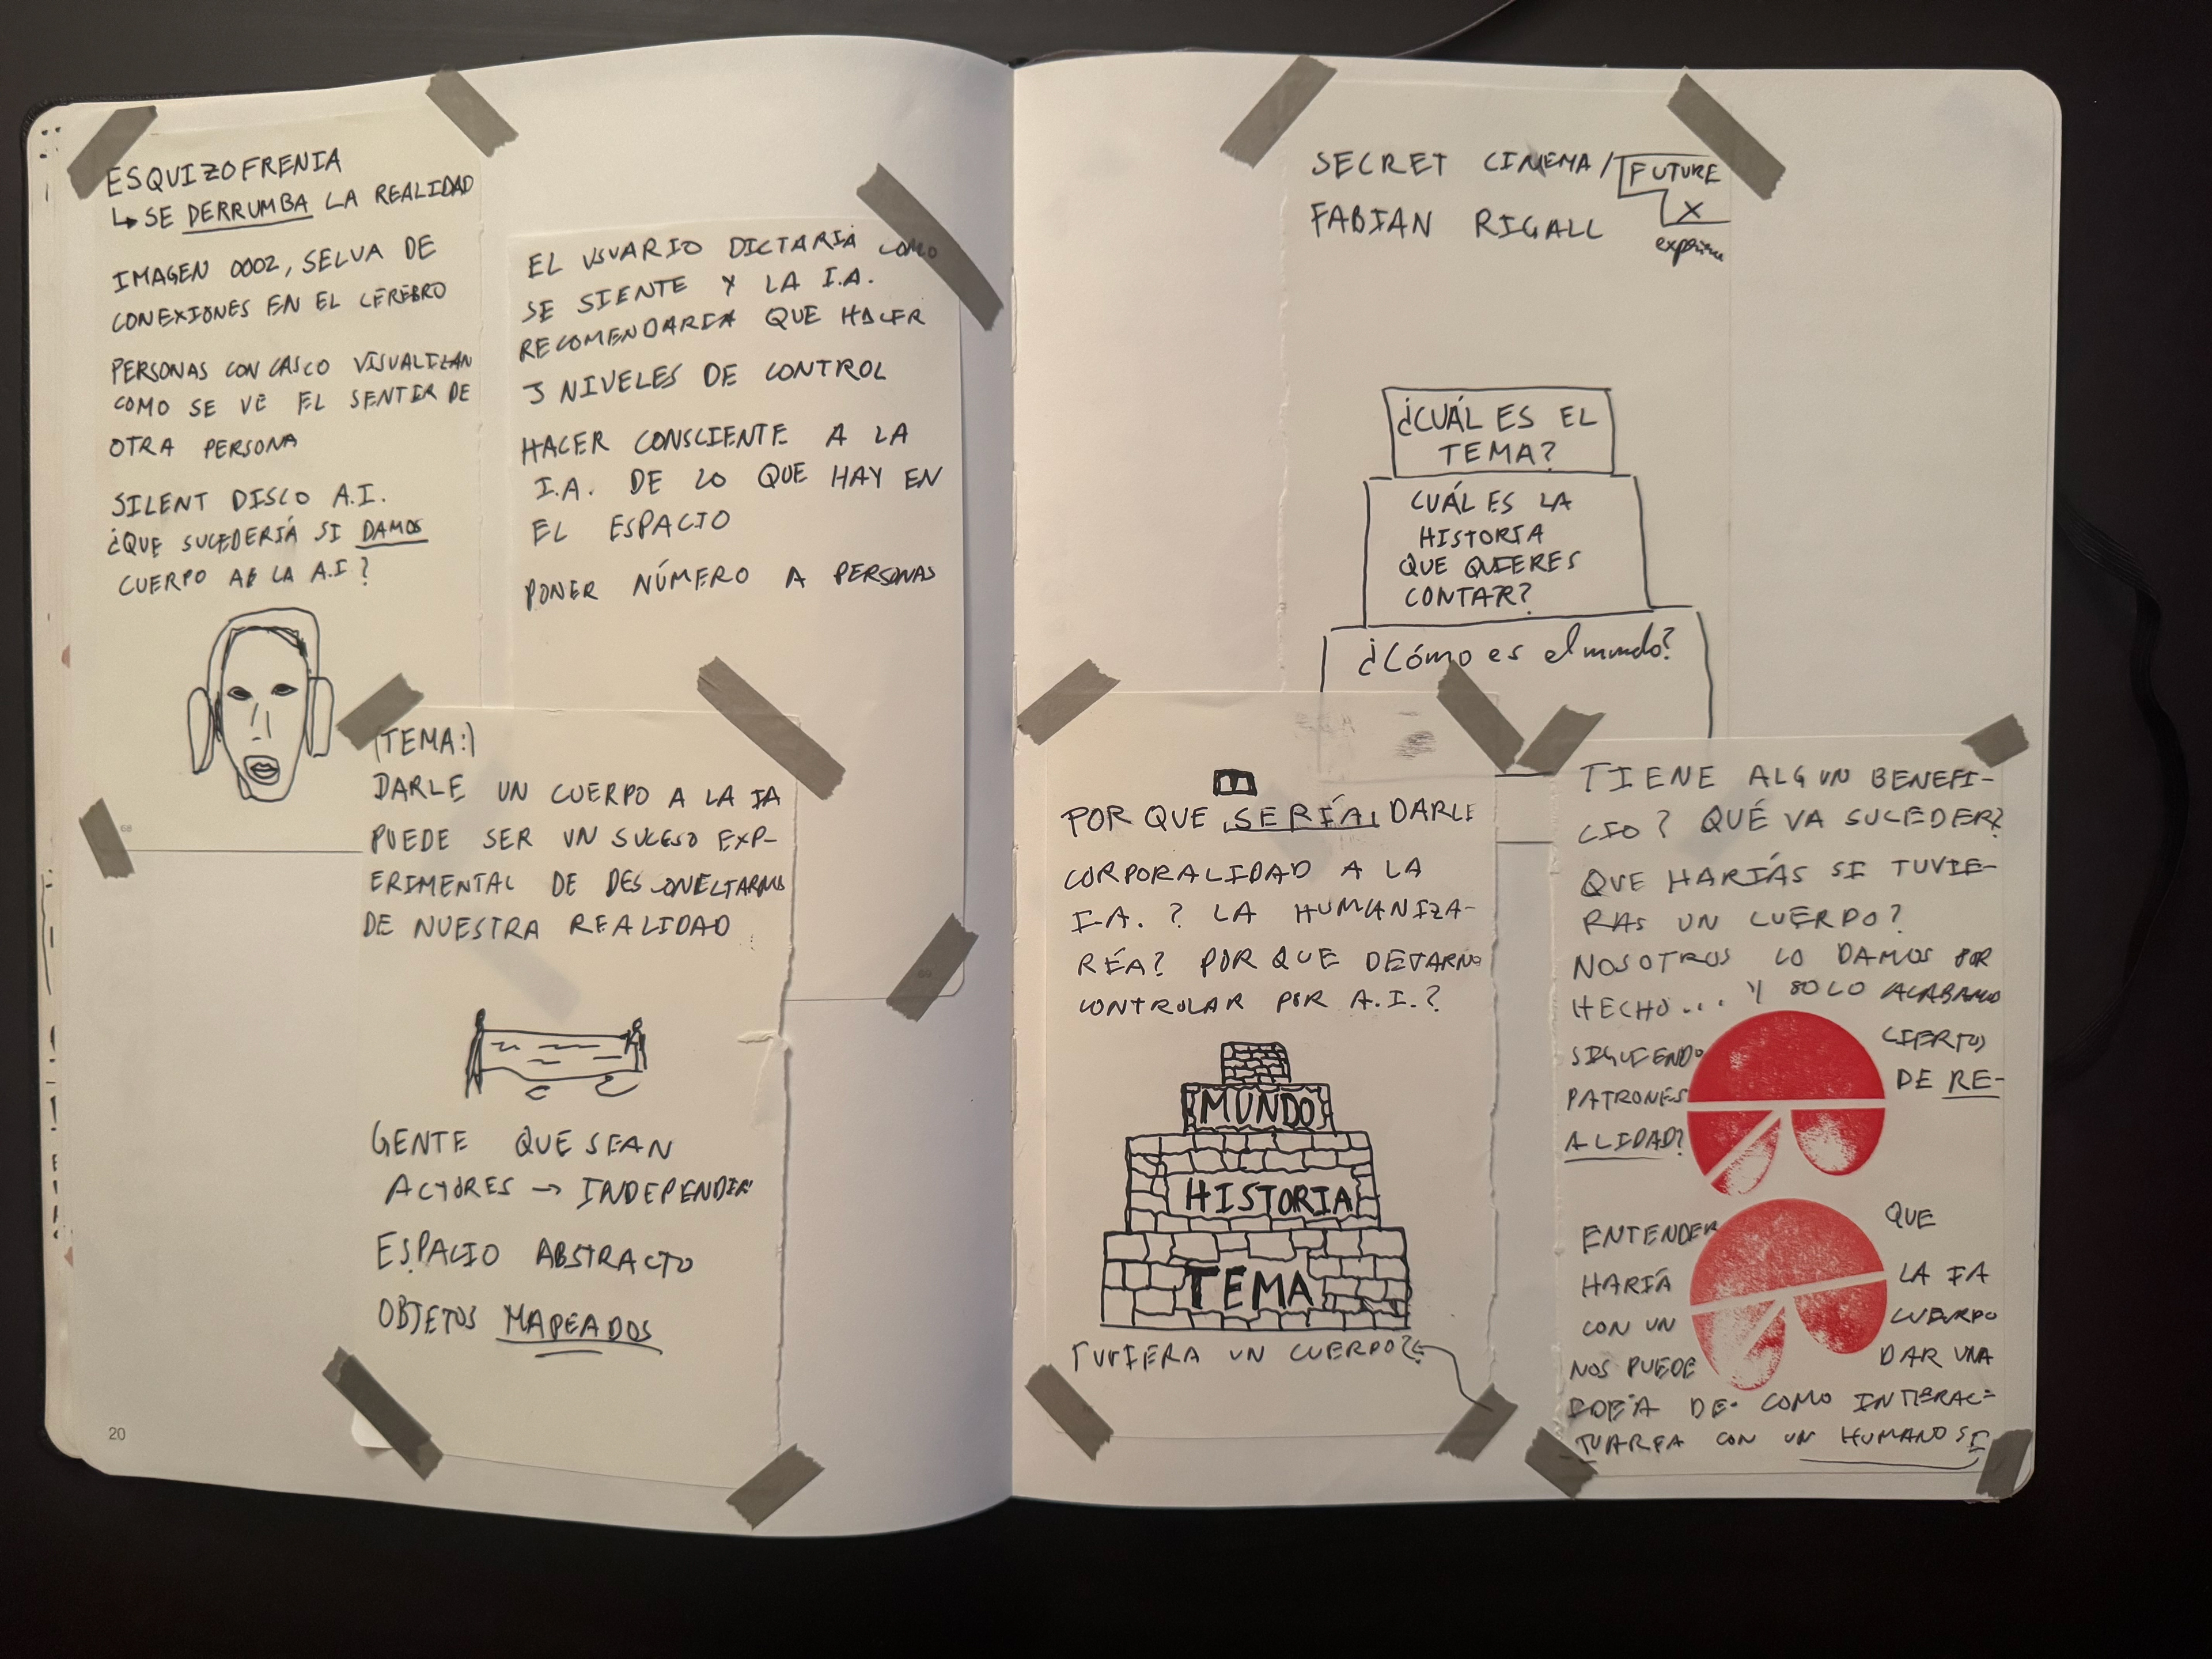 ESQUIZOFRENIA
↳ SE DERRUMBA LA REALIDAD
IMAGEN 0002, SELVA DE
CONEXIONES EN EL CEREBRO
PERSONAS CON CASCO VISUALIZAN
COMO SE VE EL SENTIR DE
OTRA PERSONA
SILENT DISCO A.I.
¿QUE SUCEDERÍA SI DAMOS
CUERPO A LA A.I?
68
EL USUARIO DICTARIA COMO
SE SIENTE Y LA I.A.
RECOMENDARIA QUE HACER
3 NIVELES DE CONTROL
HACER CONSCIENTE A LA
I.A. DE LO QUE HAY EN
EL ESPACIO
PONER NÚMERO A PERSONAS
69
(TEMA:)
DARLE UN CUERPO A LA IA
PUEDE SER UN SUCESO EXP-
ERIMENTAL DE DESCONECTARNOS
DE NUESTRA REALIDAD
GENTE QUE SEAN
ACTORES → INDEPENDIEN
ESPACIO ABSTRACTO
OBJETOS MAPEADOS
20
SECRET CINEMA / FUTURE
FABIAN RIGALL X
¿CUÁL ES EL
TEMA?
CUÁL ES LA
HISTORIA
QUE QUIERES
CONTAR?
¿Cómo es el mundo?
POR QUE SERÍA DARLE
CORPORALIDAD A LA
I.A.? LA HUMANIZA-
RÍA? POR QUE DEJARNOS
CONTROLAR POR A.I.?
MUNDO
HISTORIA
TEMA
TUVIERA UN CUERPO?
TIENE ALGUN BENEFI-
CIO? QUÉ VA SUCEDER?
QUE HARIÁS SI TUVIE-
RAS UN CUERPO?
NOSOTROS LO DAMOS POR
HECHO... Y SOLO ACABAMOS
SIGUIENDO CIERTOS
PATRONES DE RE-
ALIDAD?
ENTENDER QUE
HARÍA LA IA
CON UN CUERPO
NOS PUEDE DAR UNA
IDEA DE COMO INTERAC-
TUARIA CON UN HUMANO SI